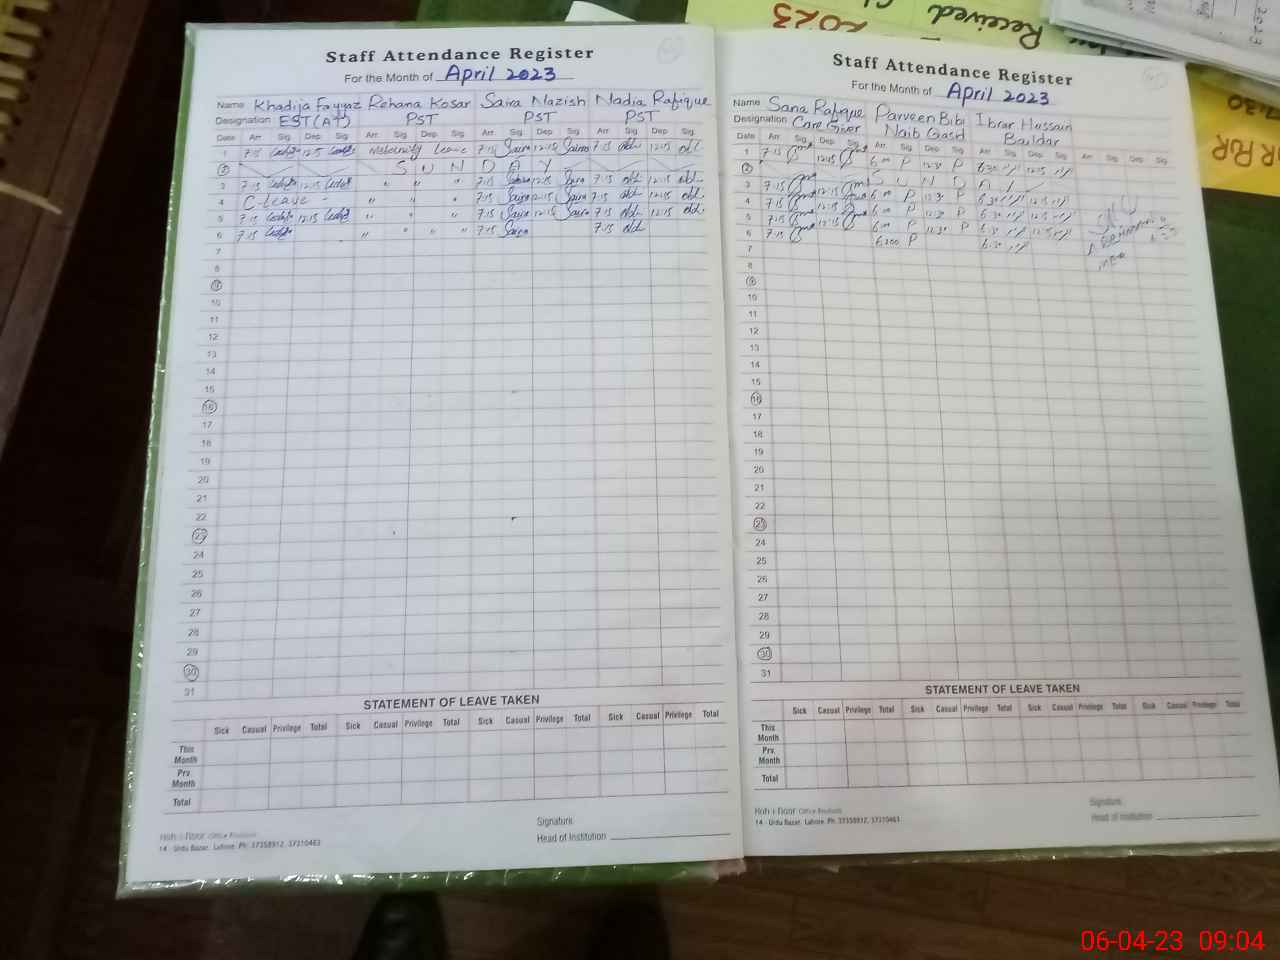 Staff Attendance Register
For the Month of April 2023
Name Khadija Fayyaz Rehana Kosar Saira Nazish Nadia Rafique
Designation EST(AT) PST PST PST
Date Arr Sig. Dep. Sig. Arr Sig. Dep. Sig. Arr. Sig. Dep Sig. Arr. Sig. Dep. Sig.
1 7:15 12:15 Maternity Leave 7:15 Saira 12:15 Saira 7:15 12:15
2 S U N D A Y
3 7:15 12:15 " " " 7:15 Saira 12:15 Saira 7:15 12:15
4 C-Leave - " " " 7:15 Saira 12:15 Saira 7:15 12:15
5 7:15 12:15 " " " 7:15 Saira 12:15 Saira 7:15 12:15
6 7:15 " " " " 7:15 Saira 7:15
7
8
9
10
11
12
13
14
15
16
17
18
19
20
21
22
23
24
25
26
27
28
29
30
31
STATEMENT OF LEAVE TAKEN
Sick Casual Privilege Total Sick Casual Privilege Total Sick Casual Privilege Total Sick Casual Privilege Total
This Month
Prv. Month
Total
Signature.
Head of Institution
14 - Urdu Bazar, Lahore. Ph: 37358912, 37310463
Staff Attendance Register
For the Month of April 2023
Name Sana Rafique Parveen Bibi Ibrar Hussain
Designation Care Giver Naib Qasid
Date Arr Sig. Dep. Sig. Arr Sig. Dep. Sig. Arr Sig. Dep. Sig. Arr Sig. Dep. Sig.
1 7:15 12:15 6:00 P 12:30 P 6:30
2 S U N D A Y
3 7:15 12:15 6:00 P 12:30 P 6:30
4 7:15 12:15 6:00 P 12:30 P 6:30
5 7:15 12:15 6:00 P 12:30 P 6:30
6 7:15 6:00 P 6:30
7
8
9
10
11
12
13
14
15
16
17
18
19
20
21
22
23
24
25
26
27
28
29
30
31
STATEMENT OF LEAVE TAKEN
Sick Casual Privilege Total Sick Casual Privilege Total Sick Casual Privilege Total Sick Casual Privilege Total
This Month
Prv. Month
Total
Signature.
Head of Institution
14 - Urdu Bazar, Lahore. Ph: 37358912, 37310463
Received
2023
06-04-23 09:04